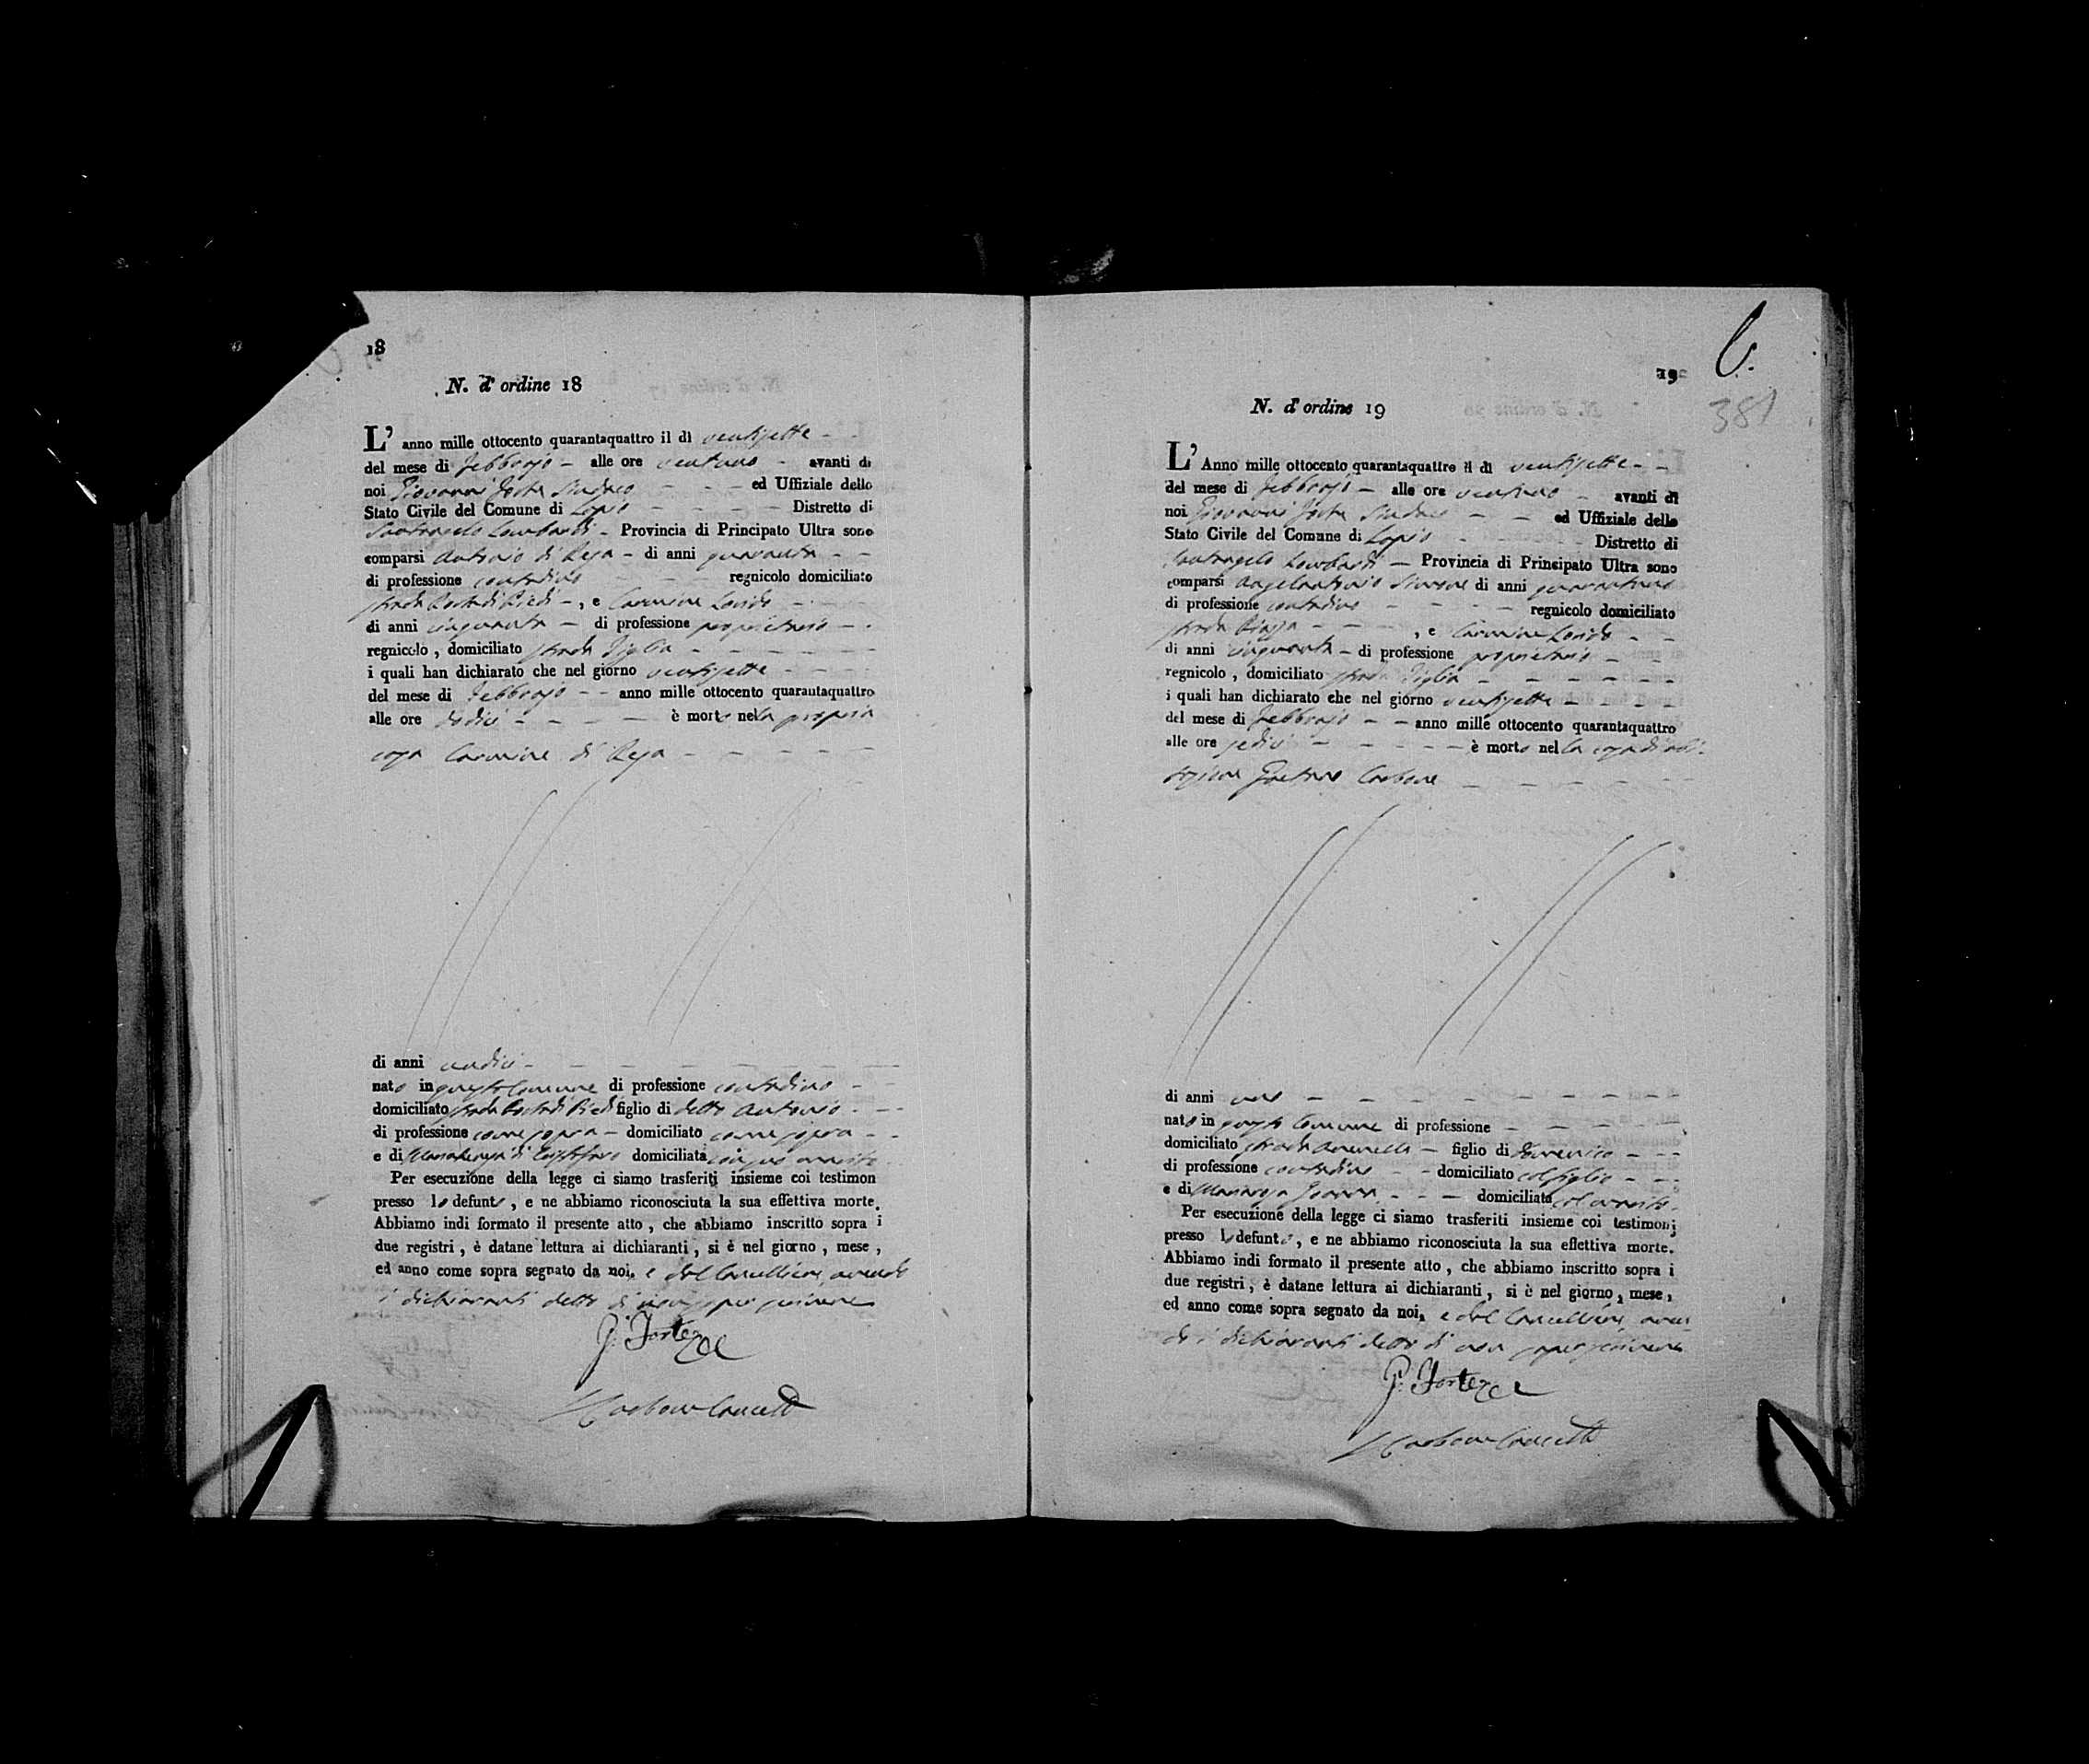 18
N. d'ordine 18
L' anno mille ottocento quarantaquattro il dì ventisette
del mese di Febbrajo — alle ore ventuno — avanti di
noi Giovanni Forte Sindaco — — ed Uffiziale dello
Stato Civile del Comune di Lapio — — — Distretto di
Santangelo Lombardi — Provincia di Principato Ultra sono
comparsi Antonio di Reja — di anni quaranta — —
di professione contadino regnicolo domiciliato
strada Costa di Piedi —, e Carmine
di anni cinquanta — di professione proprietario — .
regnicolo, domiciliato strada — — — —
i quali han dichiarato che nel giorno ventisette — — —
del mese di Febbrajo — — anno mille ottocento quarantaquattro
alle ore dodici — — — — è morto nella propria
casa Carmine di Reja — — — — —
di anni undici — — — — — — —
nato in questo Comune di professione contadino — —
domiciliato strada Costa di Piedi figlio di detto Antonio — —
di professione come sopra — domiciliato come sopra — —
e di domiciliata marito
Per esecuzione della legge ci siamo trasferiti insieme coi testimon
presso lo defunto, e ne abbiamo riconosciuta la sua effettiva morte.
Abbiamo indi formato il presente atto, che abbiamo inscritto sopra i
due registri, è datane lettura ai dichiaranti, si è nel giorno, mese,
ed anno come sopra segnato da noi, e dal Cancelliere, avendo
i dichiaranti detto di non saper scrivere
G. Forte
Carbone Cancell
6.
19
381
N. d'ordine 19
L' Anno mille ottocento quarantaquattro il dì ventisette — —
del mese di Febbrajo — alle ore ventuno — avanti di
noi Giovanni Forte Sindaco — — ed Uffiziale dello
Stato Civile del Comune di Lapio — — — Distretto di
Santangelo Lombardi — Provincia di Principato Ultra sono
comparsi Angelantonio Simone di anni quarantuno
di professione contadino — — — — regnicolo domiciliato
strada Piazza — — , e Carmine — —
di anni cinquanta — di professione proprietario — —
regnicolo, domiciliato strada — — — — — —
i quali han dichiarato che nel giorno ventisette — — — —
del mese di Febbrajo — — anno mille ottocento quarantaquattro
alle ore sedici — — — — è morto nella casa di abi-
tazione Gaetano Carbone — — — — —
di anni uno — — — — — — — —
nato in questo Comune di professione — — — —
domiciliato strada — figlio di Domenico — — —
di professione contadino — — domiciliato col figlio — — —
e di Mariarosa — — — domiciliata col marito.
Per esecuzione della legge ci siamo trasferiti insieme coi testimonj
presso lo defunto, e ne abbiamo riconosciuta la sua effettiva morte.
Abbiamo indi formato il presente atto, che abbiamo inscritto sopra i
due registri, è datane lettura ai dichiaranti, si è nel giorno, mese,
ed anno come sopra segnato da noi, e dal Cancelliere, aven-
do i dichiaranti detto di non saper scrivere
G. Forte
Carbone Cancell